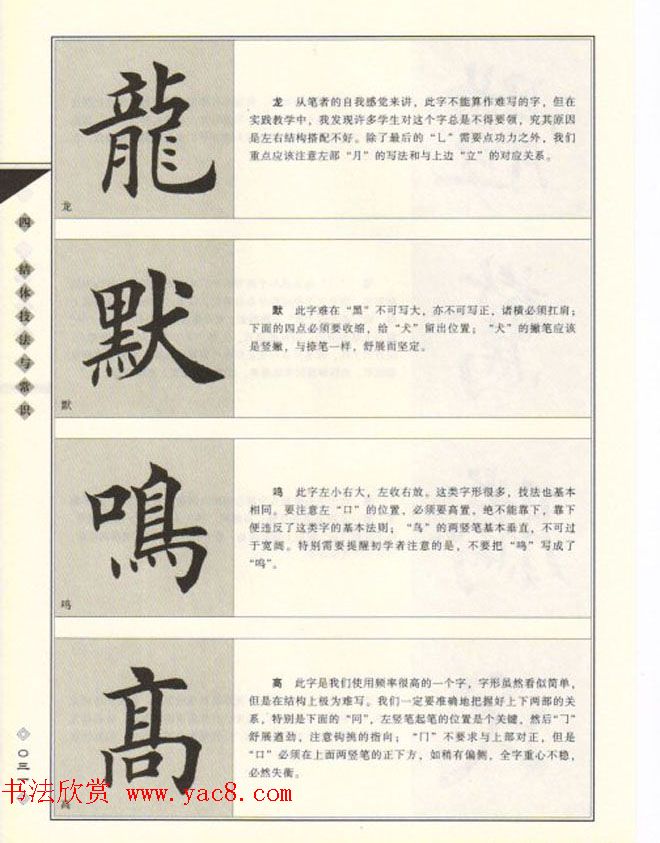 龍
龙
龙 从笔者的自我感觉来讲,此字不能算作难写的字,但在
实践教学中,我发现许多学生对这个字总是不得要领,究其原因
是左右结构搭配不好。除了最后的“乚”需要点功力之外,我们
重点应该注意左部“月”的写法和与上边“立”的对应关系。
四 结体技法与常识
默
默
默 此字难在“黑”不可写大,亦不可写正,诸横必须扛肩;
下面的四点必须要收缩,给“犬”留出位置;“犬”的撇笔应该
是竖撇,与捺笔一样,舒展而坚定。
鳴
鸣
鸣 此字左小右大,左收右放。这类字形很多,技法也基本
相同。要注意左“口”的位置,必须要高置,绝不能靠下,靠下
便违反了这类字的基本法则;“鸟”的两竖笔基本垂直,不可过
于宽阔。特别需要提醒初学者注意的是,不要把“鸣”写成了
“呜”。
髙
高 此字是我们使用频率很高的一个字,字形虽然看似简单,
但是在结构上极为难写。我们一定要准确地把握好上下两部的关
系,特别是下面的“冋”,左竖笔起笔的位置是个关键,然后“㇆”
舒展遒劲,注意钩挑的指向;“冂”不要求与上部对正,但是
“口”必须在上面两竖笔的正下方,如稍有偏侧,全字重心不稳,
必然失衡。
〇三
书法欣赏 www.yac8.com